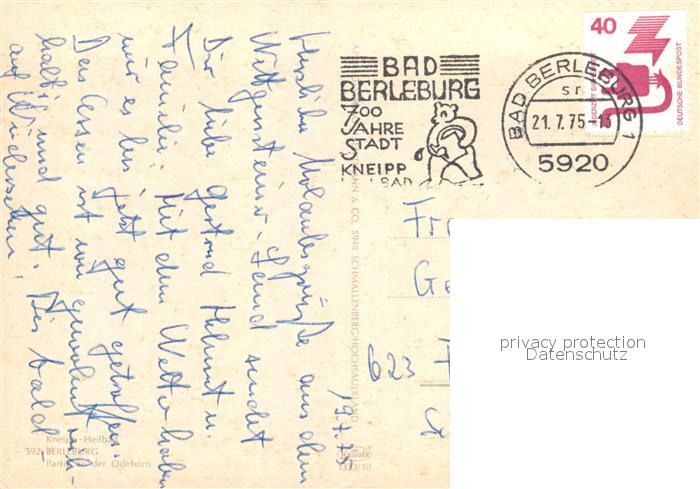 BAD
BERLEBURG
700
JAHRE
STADT
KNEIPP
BAD
BAD BERLEBURG 1
sr
21.7.75-13
5920
40
DEUTSCHE BUNDESPOST
JEDERZEIT SICHERHEIT
19.7.75
Herzliche Urlaubsgrüße aus dem
Wittgensteiner-Land sendet
Dir liebe Gertrud Helmut u.
Familie. Mit dem Wetter haben
wir es bis jetzt gut getroffen.
Das Essen ist
haltig und gut. Bis bald
auf Wiedersehen!
& CO., 5948 SCHMALLENBERG/HOCHSAUERLAND
Fr
Ge
623
privacy protection
Datenschutz
Kneipp-Heilbad
592 BERLEBURG
Partie an der Odeborn
Krüger
1333/10